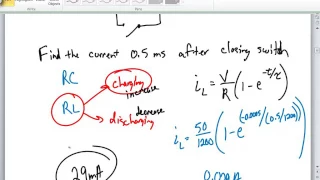 Find the current 0.5 ms after closing switch
RC
RL
charging
increase
decrease
discharging
i_L = V/R (1 - e^{-t/τ})
i_L = 50/1200 (1 - e^{-0.0005/(0.5/1200)})
29mA